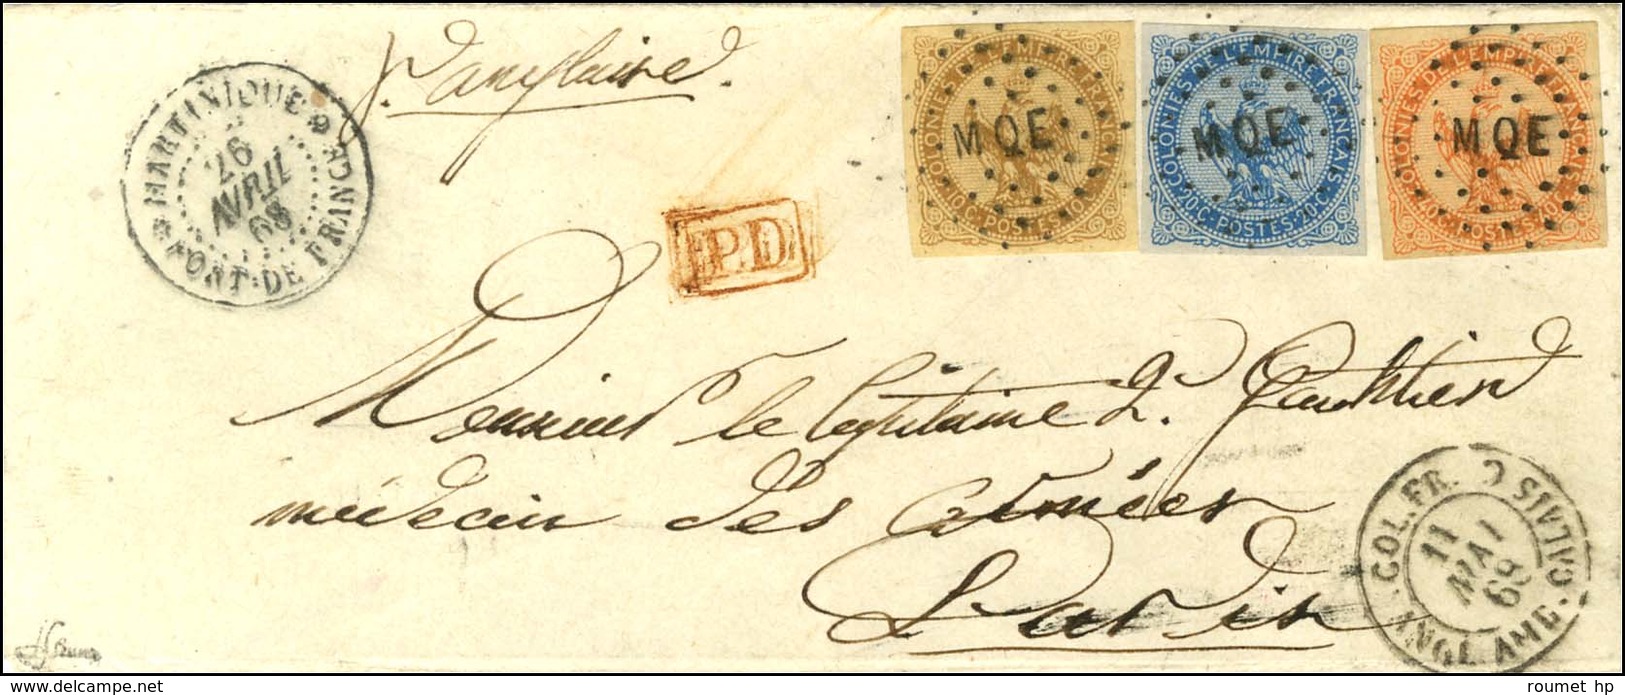 p. anglaise.
MARTINIQUE
26
AVRIL
68
FORT-DE FRANCE
P.D.
COLONIES DE L'EMPIRE FRANÇAIS
MQE
10. C. POSTES 10. C.
COLONIES DE L'EMPIRE FRANÇAIS
MQE
20. C. POSTES 20. C.
COLONIES DE L'EMPIRE FRANÇAIS
MQE
40. C. POSTES 40. C.
Monsieur le Capitaine
médecin des Armées
Paris
COL. FR.
11
MAI
68
ANGL. AMB. CALAIS
www.delcampe.net
roumet hp